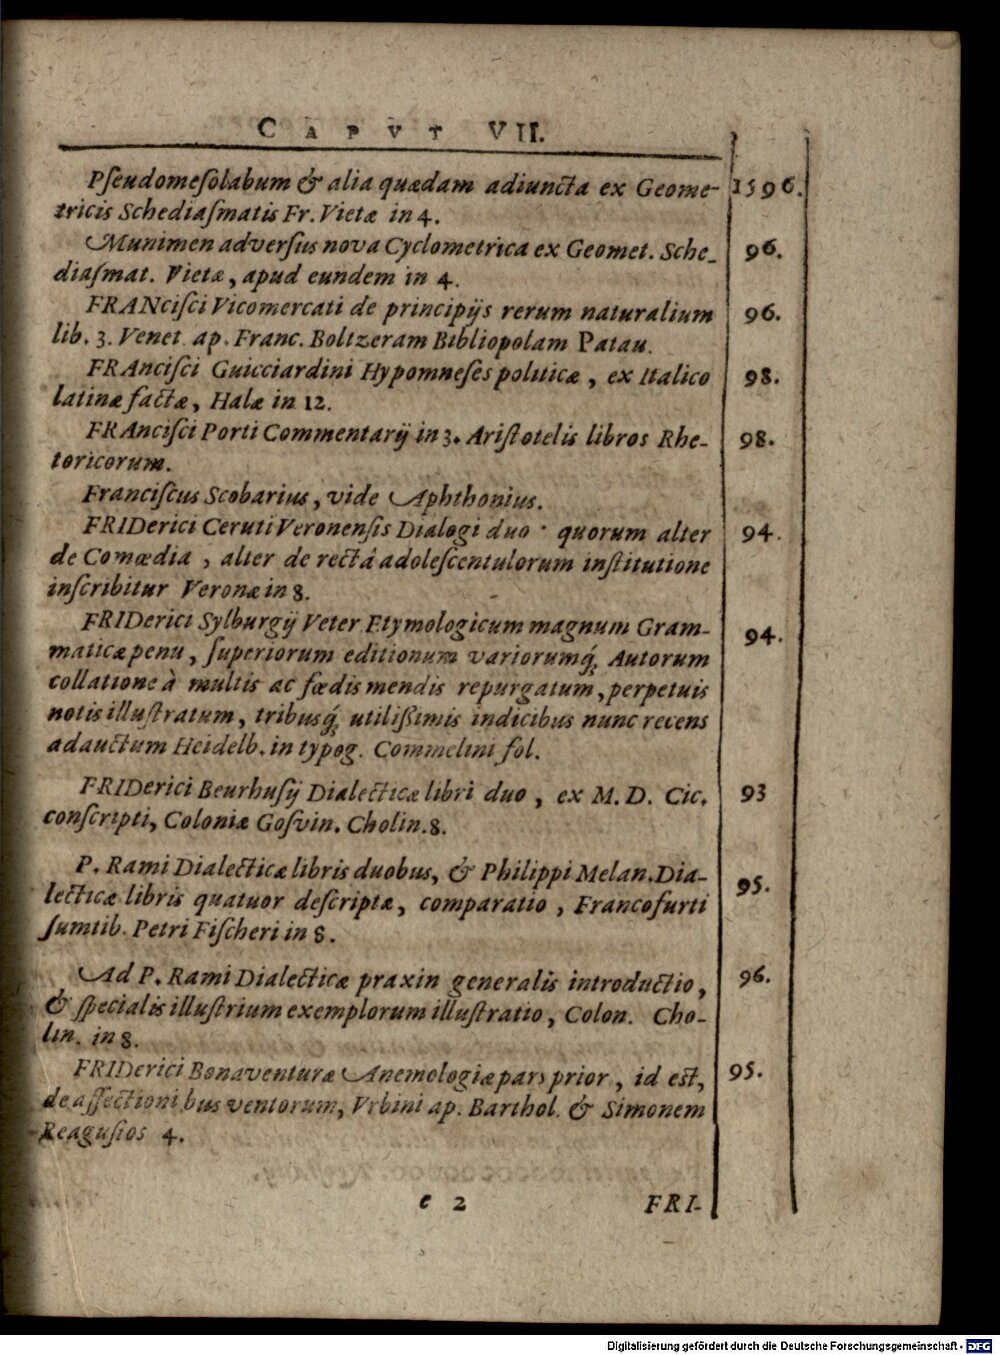 CAPVT VII.
Pſeudomeſolabum & alia quædam adiuncta ex Geome- 1596.
tricis Schediaſmatis Fr. Vietæ in 4.
Munimen adverſus nova Cyclometrica ex Geomet. Sche- 96.
diaſmat. Vietæ, apud eundem in 4.
FRANciſci Vicomercati de principijs rerum naturalium 96.
lib. 3. Venet. ap. Franc. Boltzeram Bibliopolam Patau.
FRAnciſci Guicciardini Hypomneſes politicæ, ex Italico 98.
latinæ factæ, Halæ in 12.
FRAnciſci Porti Commentarij in 3. Ariſtotelis libros Rhe- 98.
toricorum.
Franciſcus Scobarius, vide Aphthonius.
FRIDerici Ceruti Veronenſis Dialogi duo · quorum alter 94.
de Comœdia, alter de rectâ adoleſcentulorum inſtitutione
inſcribitur Veronæ in 8.
FRIDerici Sylburgij Veter Etymologicum magnum Gram- 94.
maticæ penu, ſuperiorum editionum variorumq́; Autorum
collatione à multis ac fœdis mendis repurgatum, perpetuis
notis illuſtratum, tribusq́; utilißimis indicibus nunc recens
adauctum Heidelb. in typog. Commelini fol.
FRIDerici Beurhuſij Dialecticæ libri duo, ex M. D. Cic. 93
conſcripti, Coloniæ Goſvin. Cholin. 8.
P. Rami Dialecticæ libris duobus, & Philippi Melan. Dia- 95.
lecticæ libris quatuor deſcriptæ, comparatio, Francofurti
ſumtib. Petri Fiſcheri in 8.
Ad P. Rami Dialecticæ praxin generalis introductio, 96.
& ſpecialis illuſtrium exemplorum illuſtratio, Colon. Cho-
lin. in 8.
FRIDerici Bonaventuræ Anemologiæ pars prior, id est, 95.
de affectionibus ventorum, Vrbini ap. Barthol. & Simonem
Reaguſios 4.
e 2 FRI-
Digitalisierung gefördert durch die Deutsche Forschungsgemeinschaft - DFG